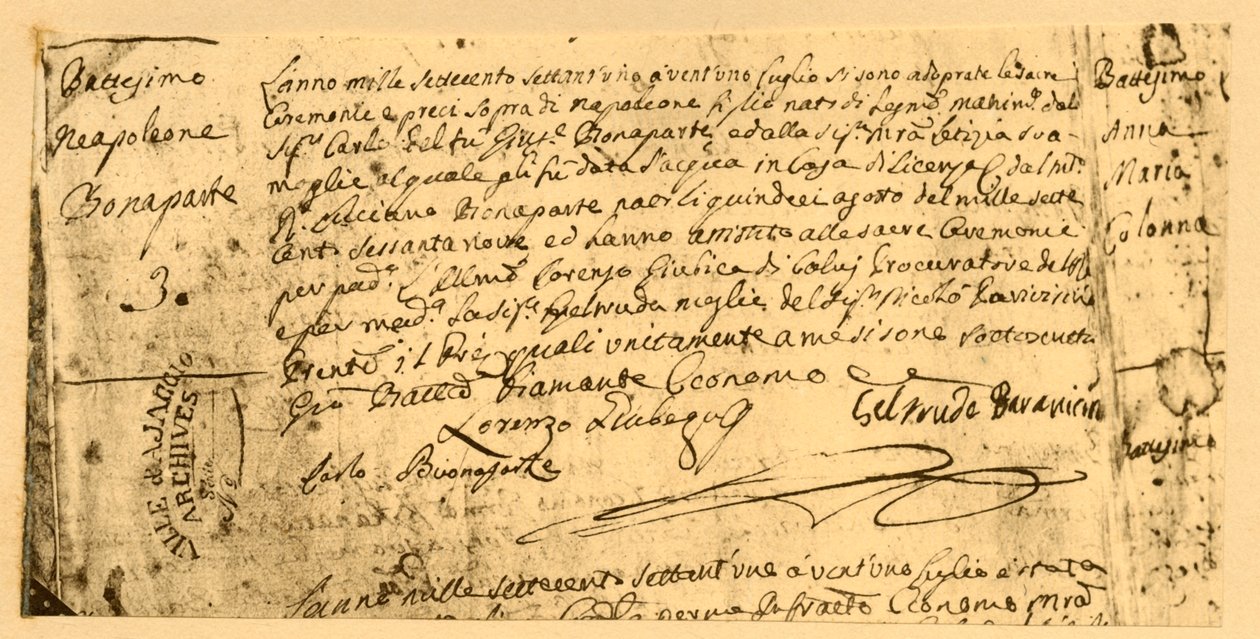 Battesimo
Neapoleone
Bonaparte
3.
L'anno mille settecento settant'uno a vent'uno luglio si sono adoprate le sacre
Ceremonie e preci sopra di Napoleone figlio nato di legmo. matrimo. dal
Sigr. Carlo del fu Giuse. Bonaparte, ed alla sigra. Mra. Letizia sua
moglie al quale gli fù data l'acqua in Casa di licenza dal
Rdo. Luciano Bonaparte nato li quindeci agosto del mille sette
cento sessanta nove ed hanno assistito alle sacre Ceremonie
per padno. l'Illmo. Lorenzo Giubica di Calvj Procuratore del Rè
e per madna. la sigra. Geltruda moglie del Sigr. Nicolò Paravicini
Presente il Pre. quali unitamente a me si sono sottoscritti
Gio. Battta. Diamante Economo
Lorenzo Giubega
Geltrude Paravicini
Carlo Buonaparte
L'anno mille settecento settant'uno a vent'uno luglio è stata
me Infratto Economo Mra
Battesimo
Anna
Maria
Colonna
Battesimo
VILLE d'AJACCIO
ARCHIVES
Nº